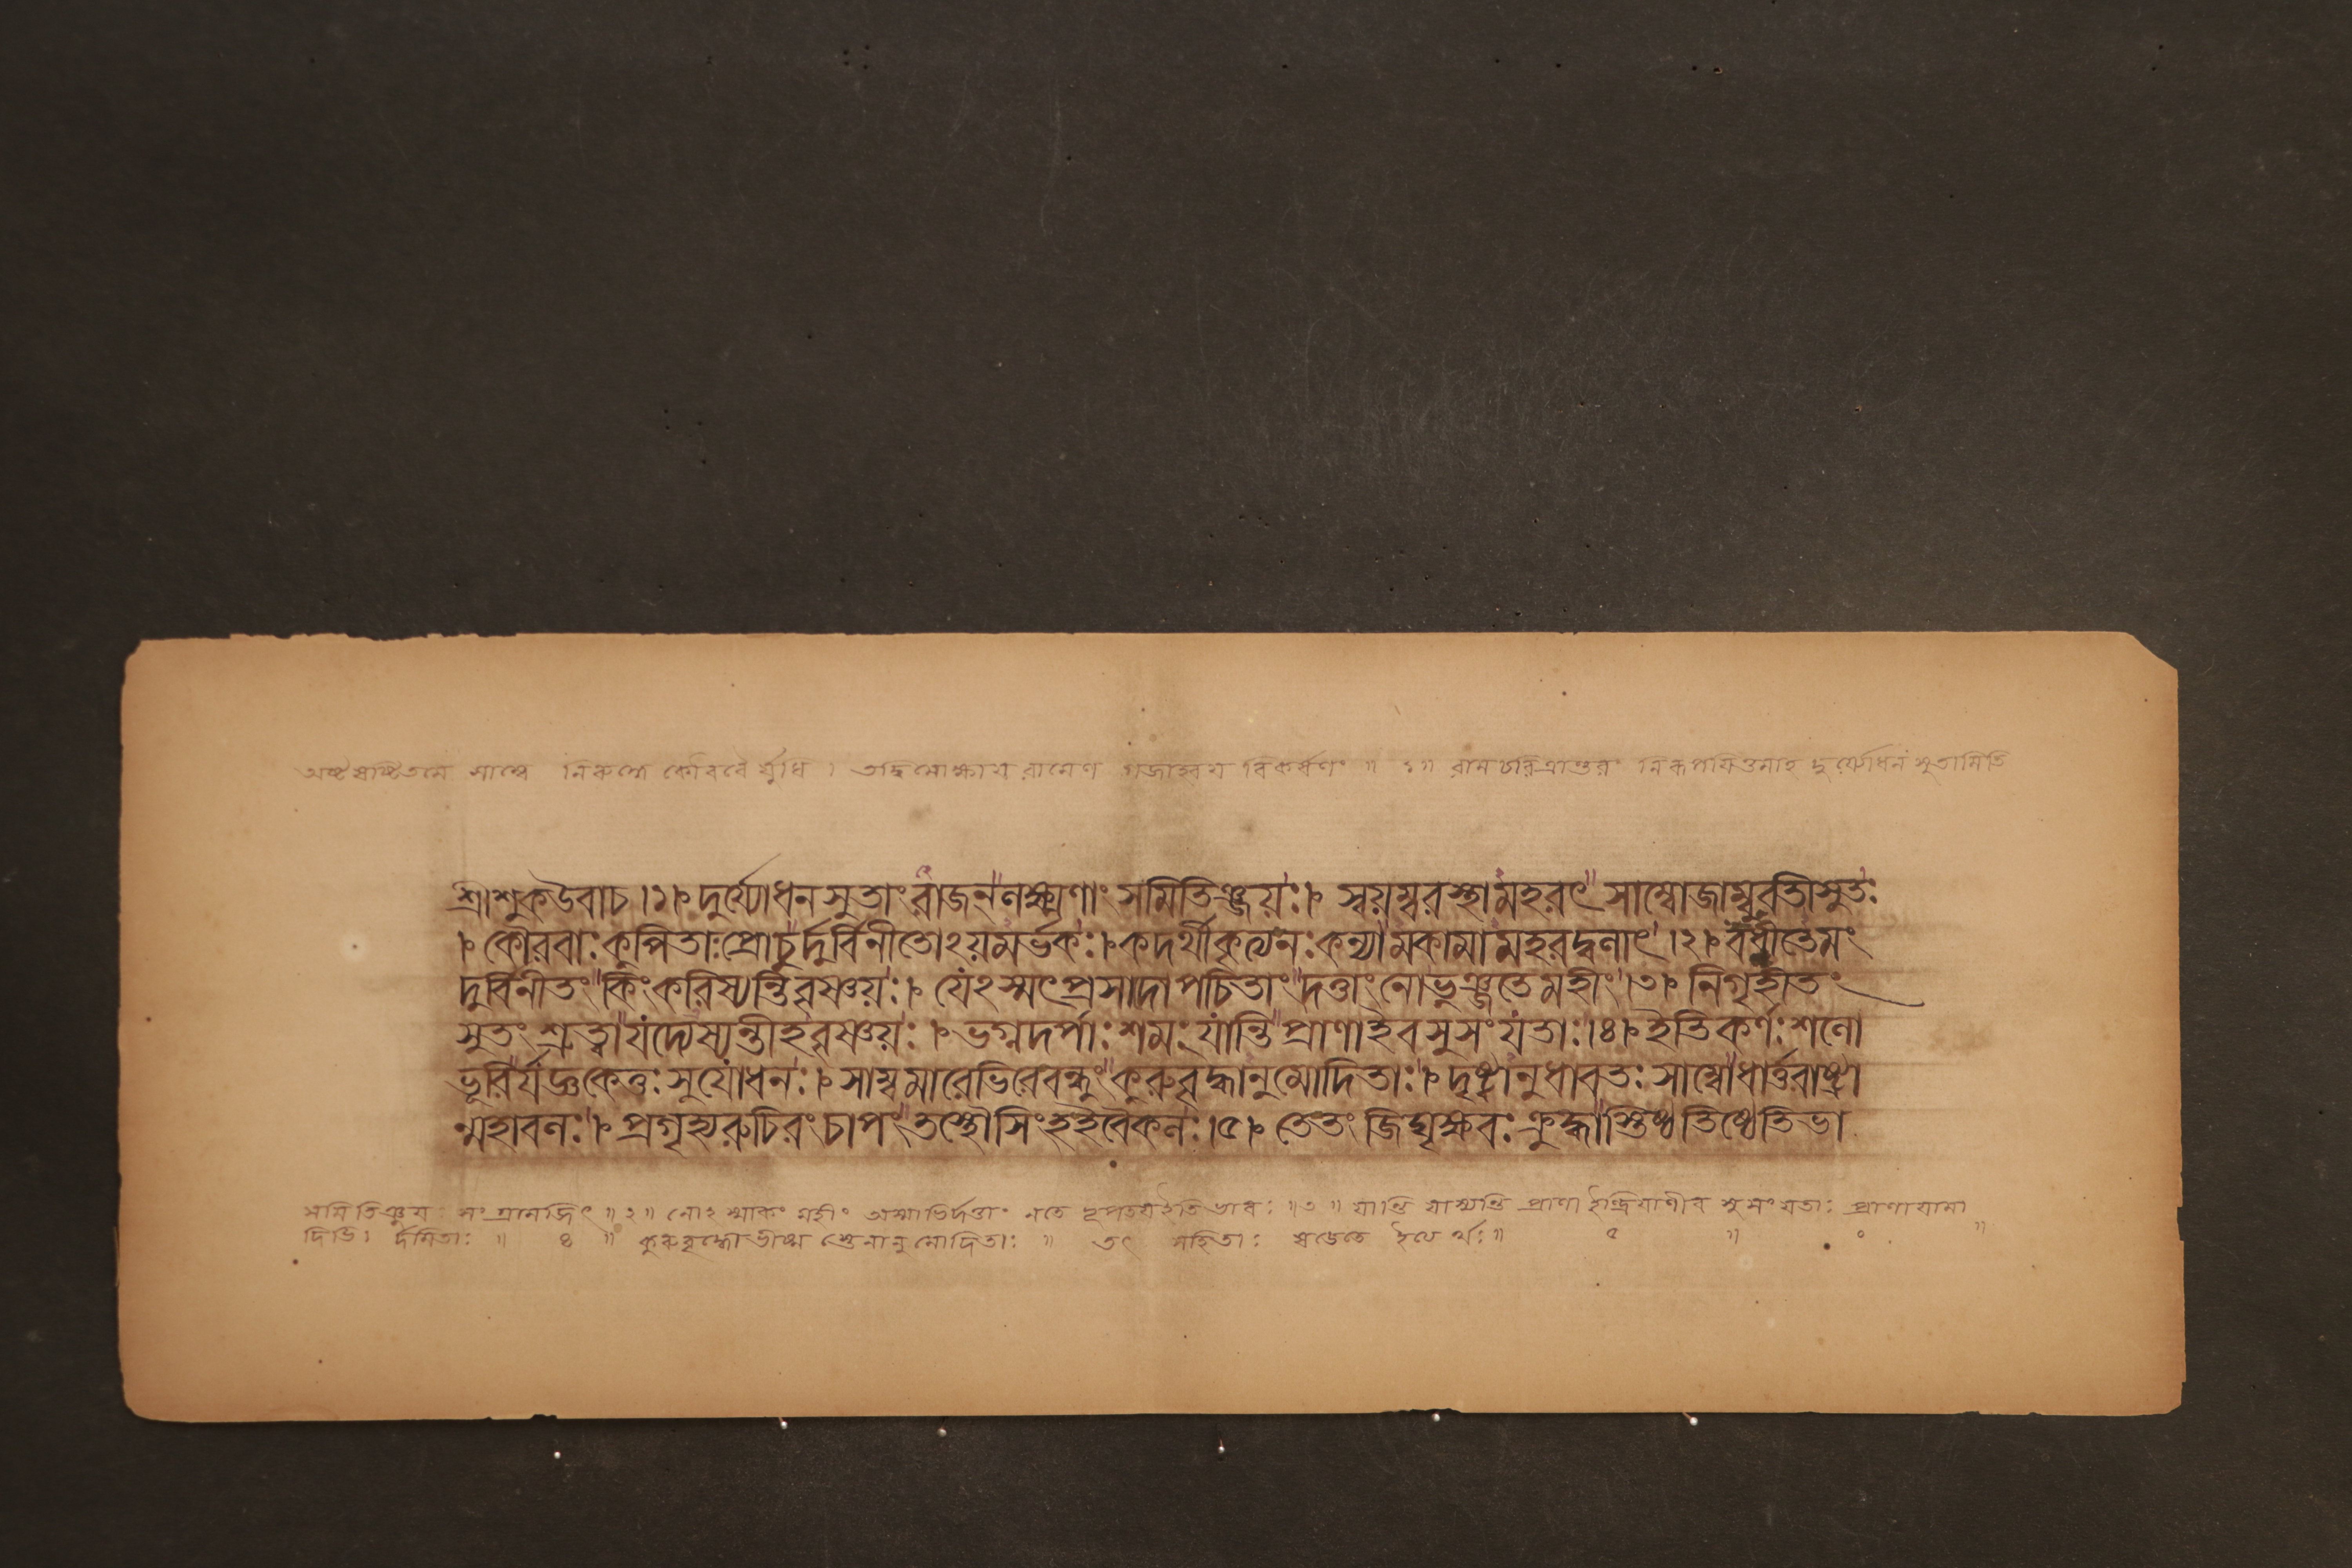 অষ্টষষ্টিতমে সাম্বে নিরুদ্ধে কৌরবৈর্যুধি । তদ্বিমোক্ষায় রামেণ গজাহ্বয় বিকর্ষণং ॥ ১॥ রামচরিত্রান্তরং নিরূপয়িতুমাহ দুর্য্যোধনসুতামিতি
শ্রীশুকউবাচ ।১। দুর্য্যোধনসুতাং রাজন্লক্ষ্মণাং সমিতিঞ্জয়ঃ। স্বয়ম্বরস্থামহরৎ সাম্বোজাম্ববতীসুতঃ
। কৌরবাঃ কুপিতাঃপ্রোচুর্দুর্বিনীতোঽয়মর্ভকঃ।কদর্থীকৃত্যনঃকন্যামকামামহরদ্বলাৎ।২। বধ্নীতেমং
দুর্বিনীতং কিংকরিষ্যন্তিবৃষ্ণয়ঃ। যেঽস্মৎপ্রসাদোপচিতাং দত্তাংনোভুঞ্জতেমহীং।৩। নিগৃহীতং
সুতং শ্রুত্বা যদ্যেষ্যন্তীহবৃষ্ণয়ঃ । ভগ্নদর্পাঃশমং যান্তি প্রাণাইবসুসংযতাঃ।৪। ইতিকর্ণঃশলো
ভূরির্যজ্ঞকেতুঃ সুযোধনঃ। সাম্বমারেভিরেবন্ধুং কুরুবৃদ্ধানুমোদিতাঃ। দৃষ্ট্বানুধাবতঃ সাম্বোধার্ত্তরাষ্ট্রা
ন্মহাবলঃ। প্রগৃহ্যরুচিরং চাপং তস্থৌসিংহইবৈকলঃ।৫। তেতং জিঘৃক্ষবঃ ক্রুদ্ধাস্তিষ্ঠতিষ্ঠেতিভা
সমিতিঞ্জয়ঃ সংগ্রামজিৎ ॥২॥ নোঽস্মাকং মহীং অস্মাভির্দত্তাং নতে নৃপতয়ইতিভাবঃ ॥৩॥ যান্তি যাস্যন্তি প্রাণা ইন্দ্রিয়াণীব সুসংযতাঃ প্রাণায়ামা
দিভি র্দমিতাঃ ॥ ৪ ॥ কুরুবৃদ্ধোভীষ্ম স্তেনানুমোদিতাঃ ॥ তৎ সহিতাঃ ষড়েতে ইত্যর্থঃ॥ ৫ ॥ ० ॥